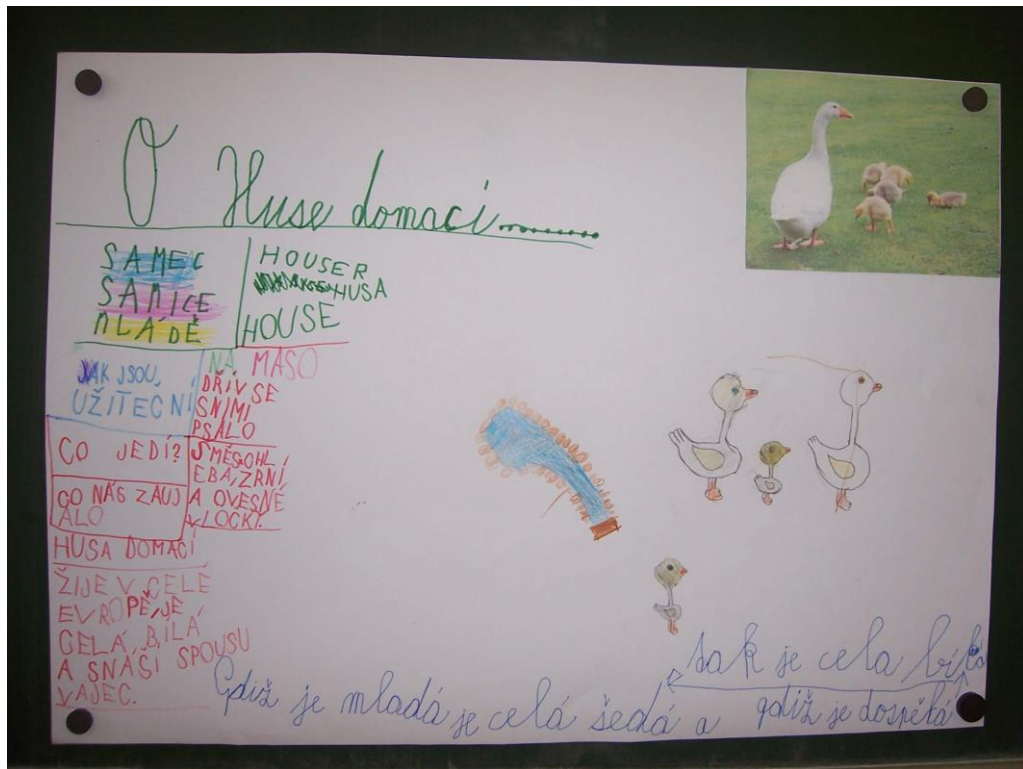 O Huse domací.........
SAMEC
SAMICE
MLÁDĚ
HOUSER
HUSA
HOUSE
JAK JSOU
UŽITEČNÍ
NA MASO
DŘÍV SE
SNIMI
PSALO
CO JEDÍ?
SMĚSOHL
EBA, ZRNÍ
A OVESNÉ
VLOČKY.
CO NÁS ZAUJ
ALO
HUSA DOMACÍ
ŽIJE V CELÉ
EVROPĚ, JE
CELÁ, BÍLÁ
A SNÁŠÍ SPOUSU
VAJEC.
Gdiž je mladá je celá šedá a gdiž je dospělá
tak je cela bílá